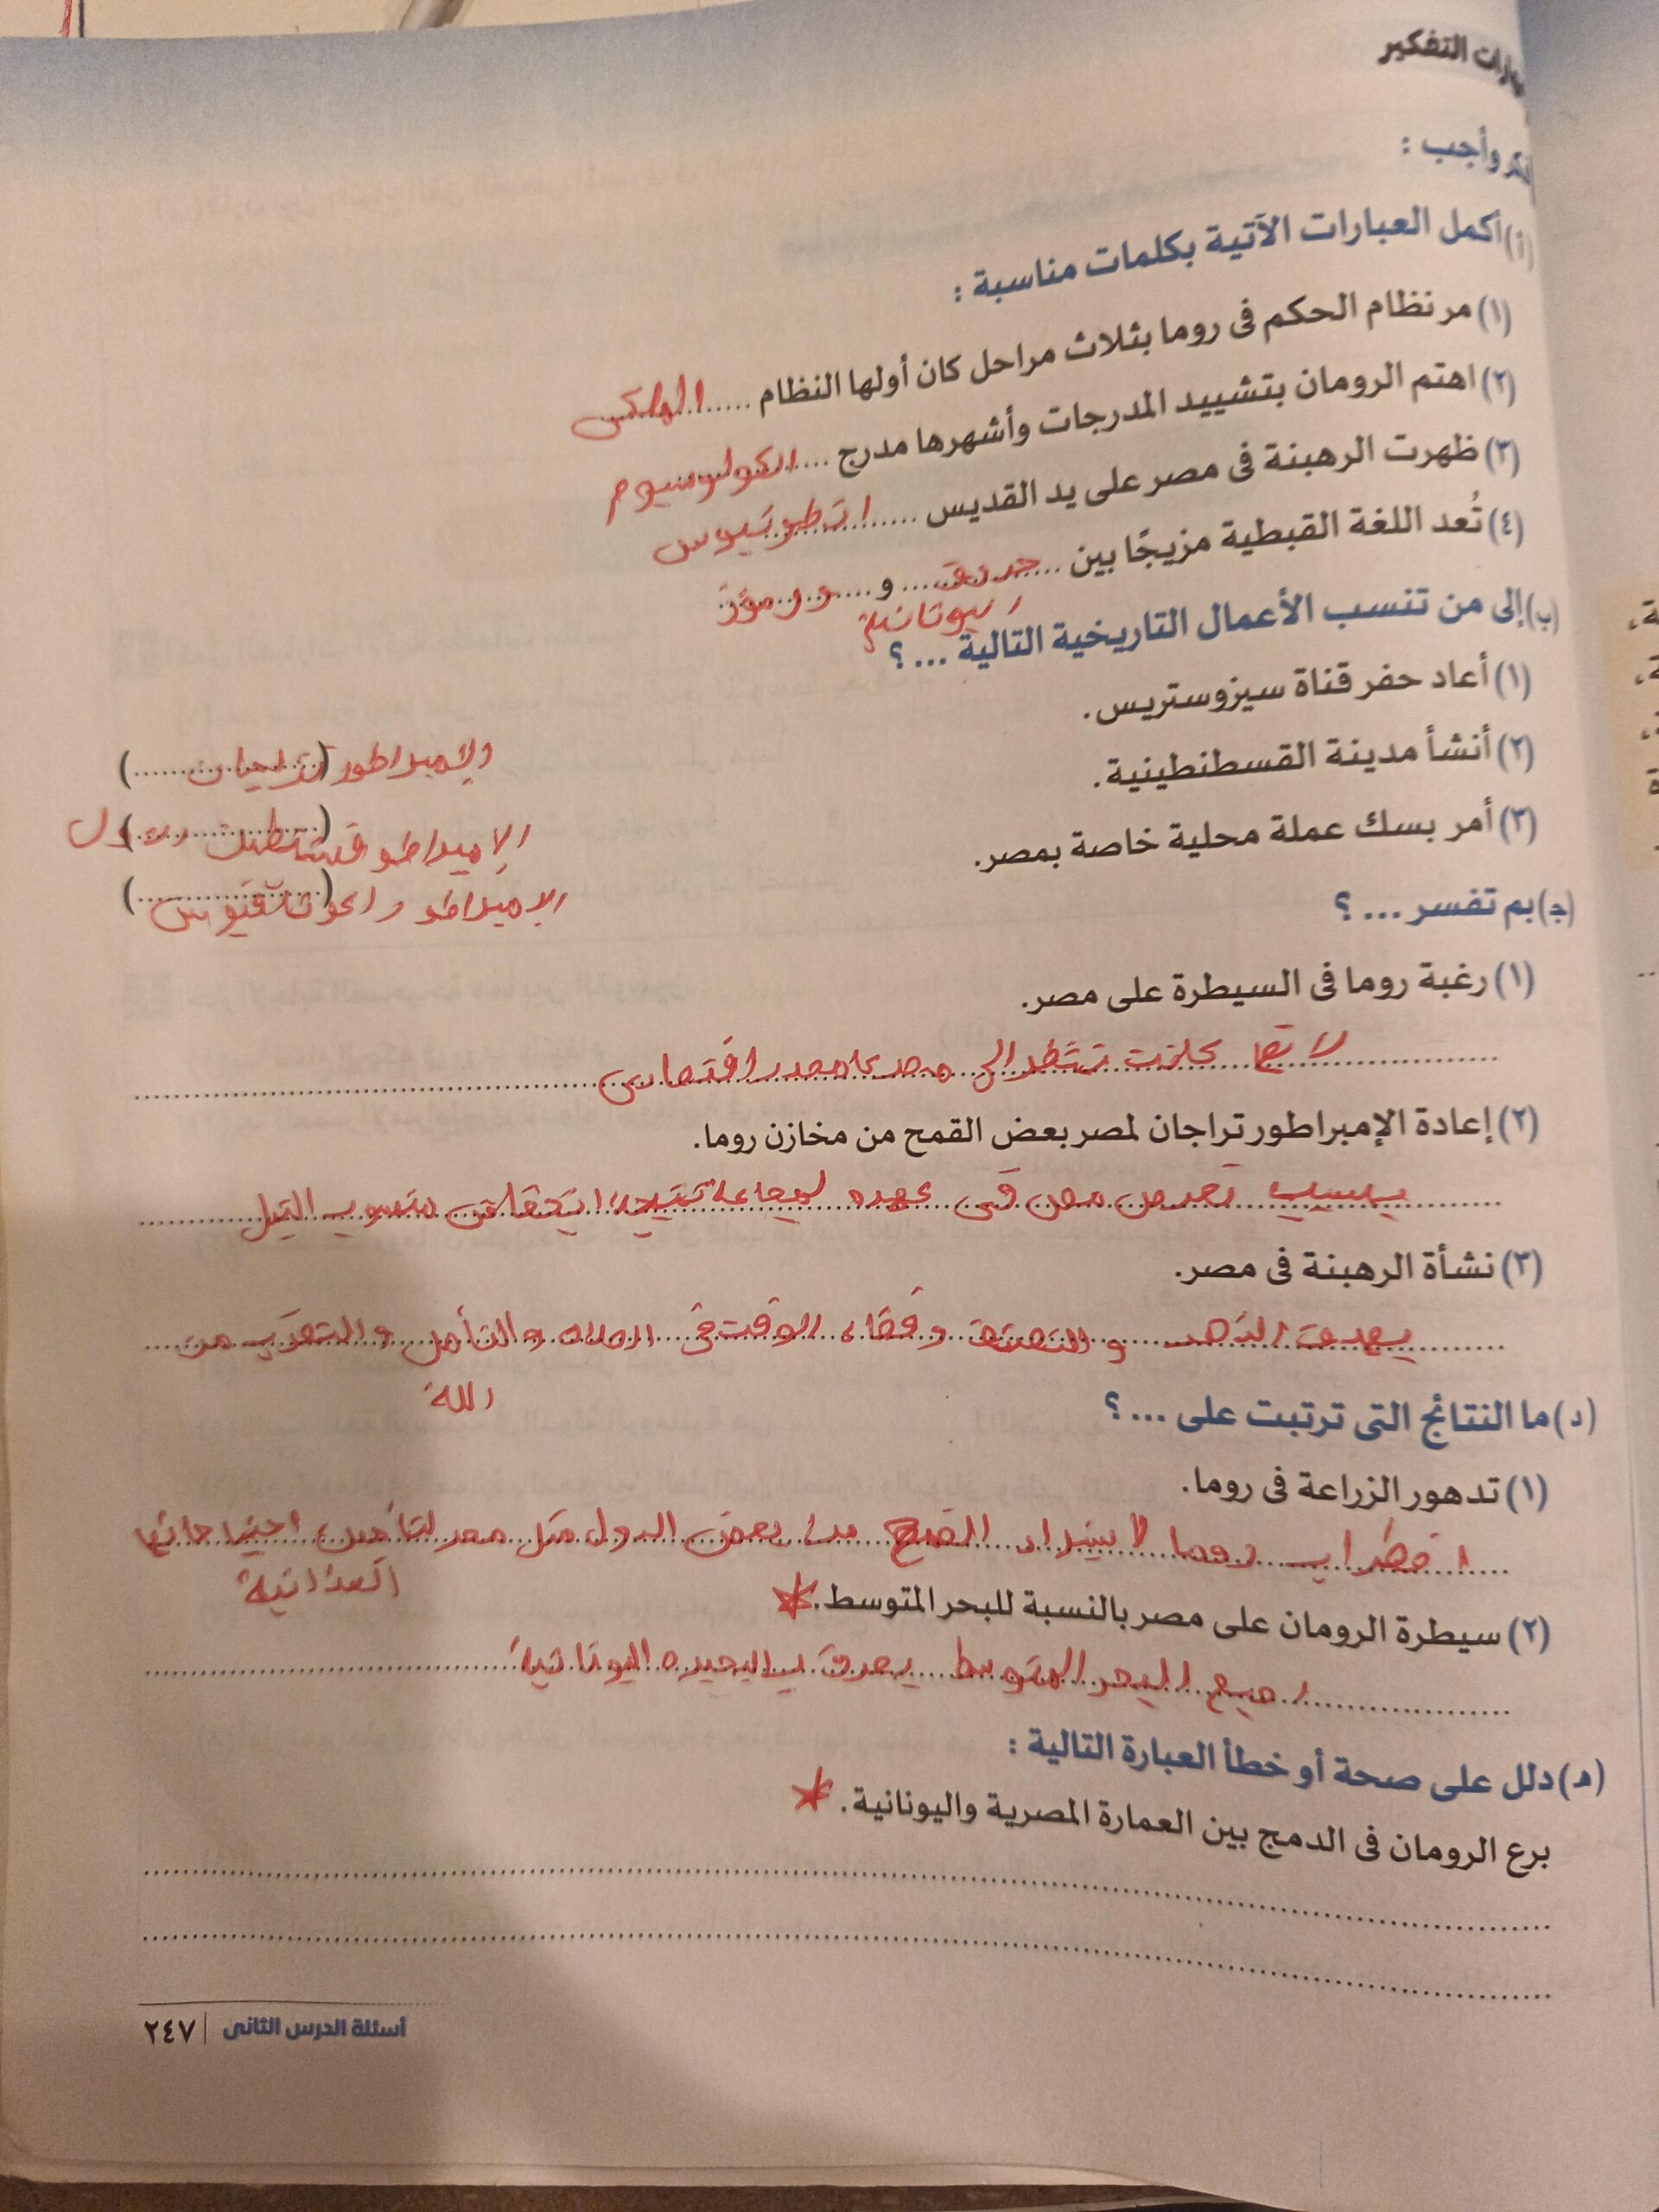 التفكير
وأجب :
(أ) أكمل العبارات الآتية بكلمات مناسبة :
(١) مر نظام الحكم فى روما بثلاث مراحل كان أولها النظام ..... الملكى
(٢) اهتم الرومان بتشييد المدرجات وأشهرها مدرج .... الكولوسيوم
(٣) ظهرت الرهبنة فى مصر على يد القديس ..... انطونيوس
(٤) تُعد اللغة القبطية مزيجًا بين ... حروف ... و ..... ورموز
يونانية
(ب) إلى من تنسب الأعمال التاريخية التالية ... ؟
(١) أعاد حفر قناة سيزوستريس.
(الإمبراطور تراجان)
(٢) أنشأ مدينة القسطنطينية.
(٣) أمر بسك عملة محلية خاصة بمصر.
(ج) بم تفسر ... ؟
(١) رغبة روما فى السيطرة على مصر.
لانها كانت تنظر الى مصر كامصدر اقتصادى
(٢) إعادة الإمبراطور تراجان لمصر بعض القمح من مخازن روما.
بسبب تعرض مصر فى عهده لمجاعة نتيجة انخفاض منسوب النيل
(٣) نشأة الرهبنة فى مصر.
بهدف الزهد و التقشف وقضاء الوقت فى الصلاه والتأمل والتقرب من
الله
(د) ما النتائج التى ترتبت على ... ؟
(١) تدهور الزراعة فى روما.
اضطراب روما لاستيراد القمح من بعض الدول مثل مصر لتأمين احتياجاتها
الغذائية
(٢) سيطرة الرومان على مصر بالنسبة للبحر المتوسط.
اصبح البحر المتوسط يعرف ب البحيره اليونانية
(هـ) دلل على صحة أو خطأ العبارة التالية :
برع الرومان فى الدمج بين العمارة المصرية واليونانية.
أسئلة الدرس الثانى | ٢٤٧